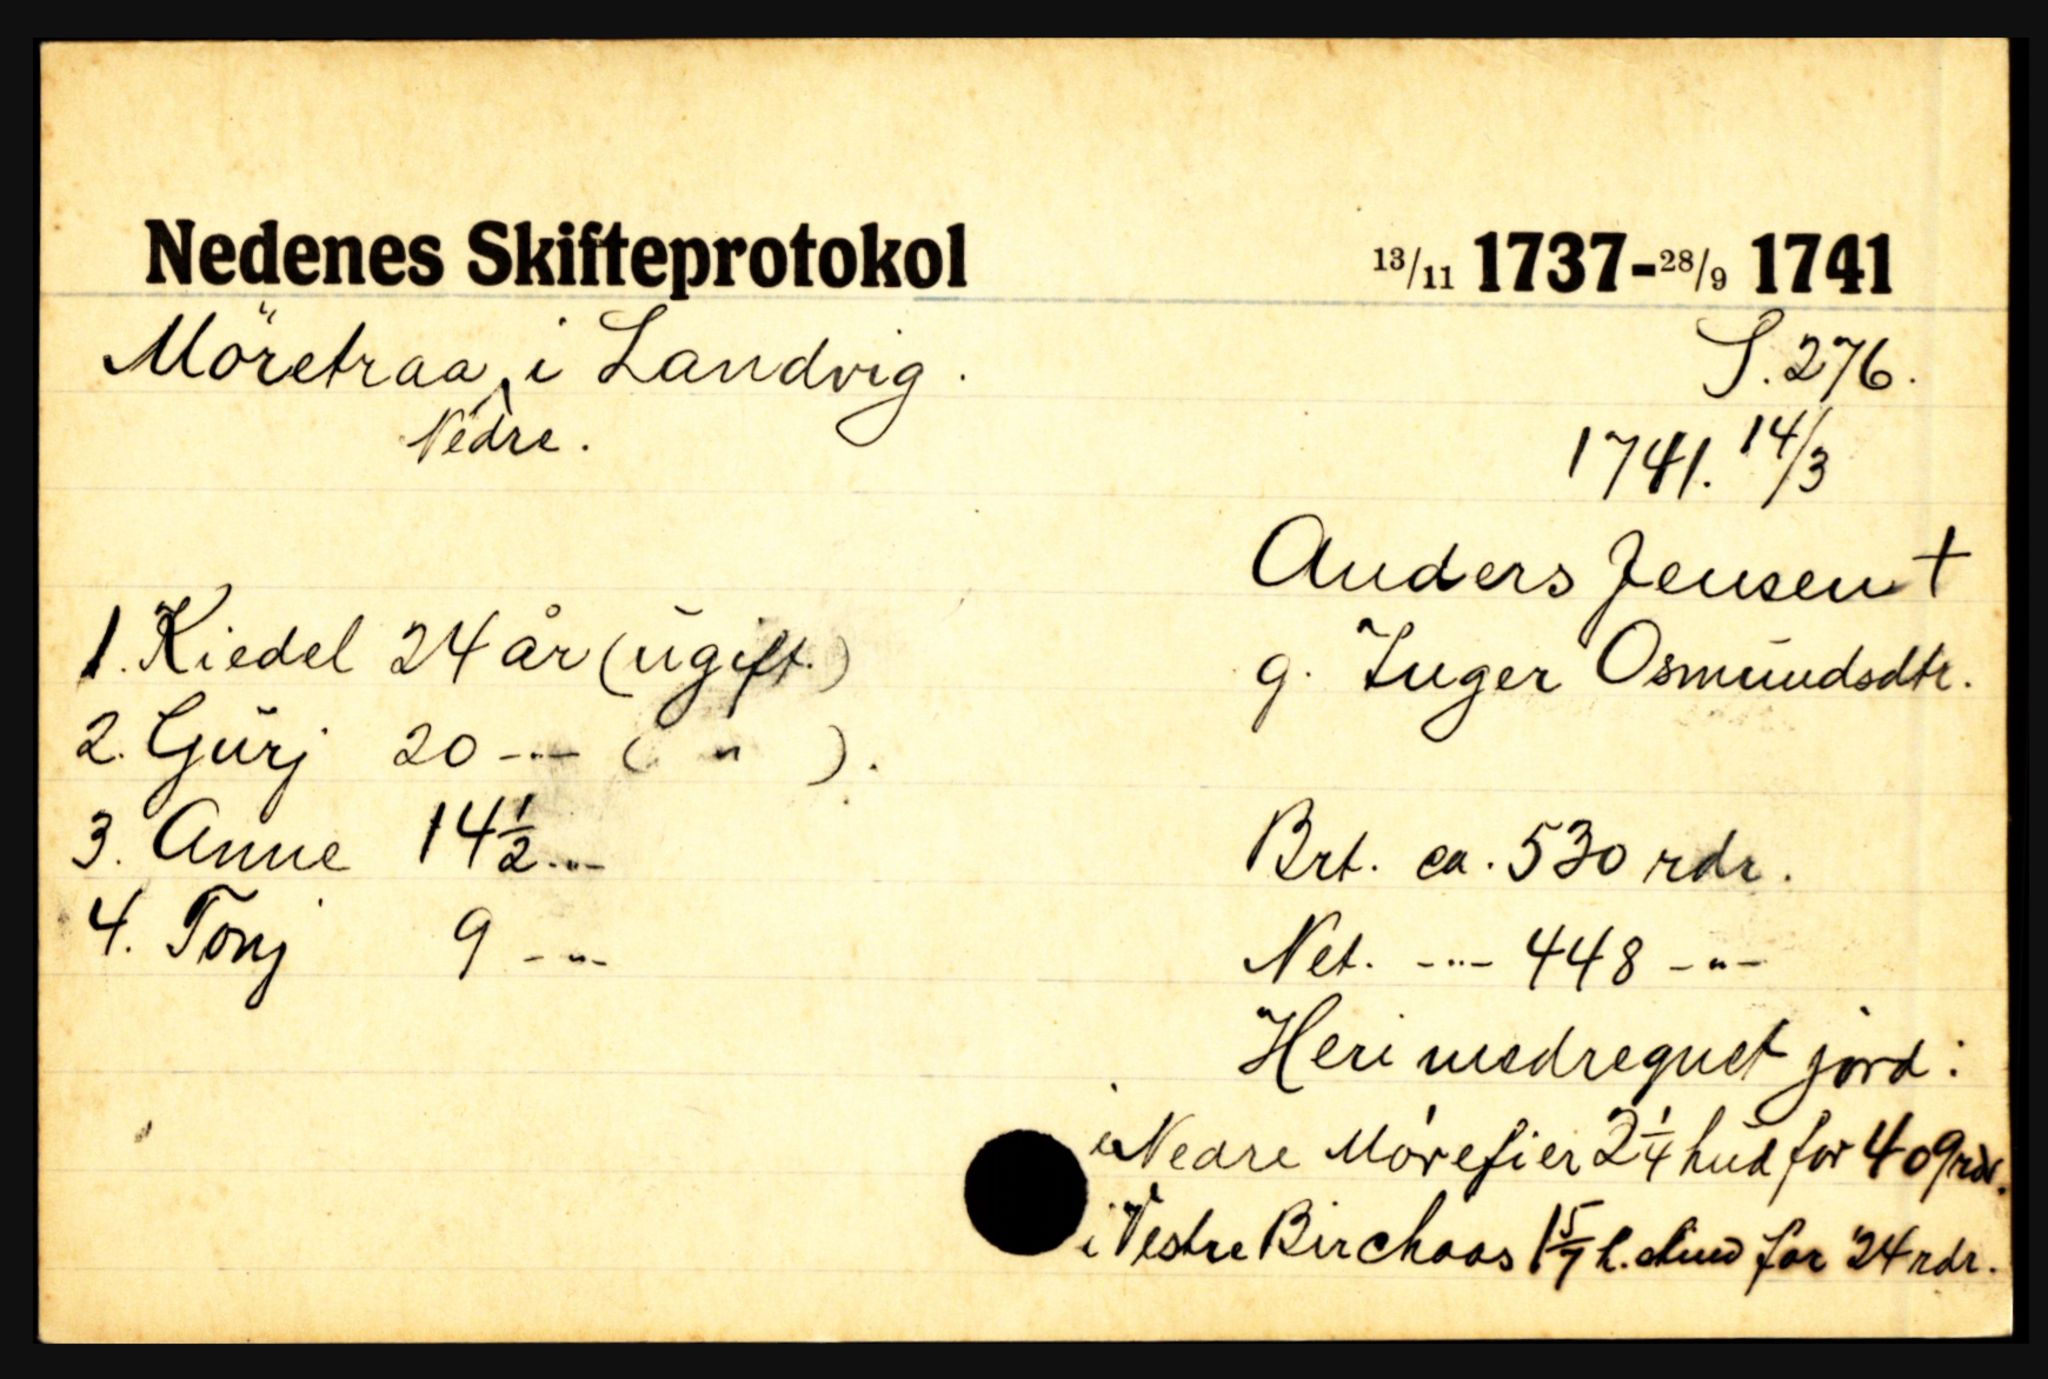 Nedenes Skifteprotokol 13/11 1737-28/9 1741
Möretraa, i Landvig.
Nedre.
S. 276.
1741. 14/3
Anders Jensen †
g. Inger Osmundsdtr.
1. Kiedel 24 år (ugift.)
2. Gurj 20 -"- ( " ).
3. Anne 14 1/2 -"-
4. Tonj 9 -"-
Brt. ca. 530 rdr.
Net. -"- 448 -"-
Heri medregnet jord:
i Nedre Mörefier 2 1/4 hud for 409 rdr.
i Vestre Birchaas 1 5/7 h. for 24 rdr.